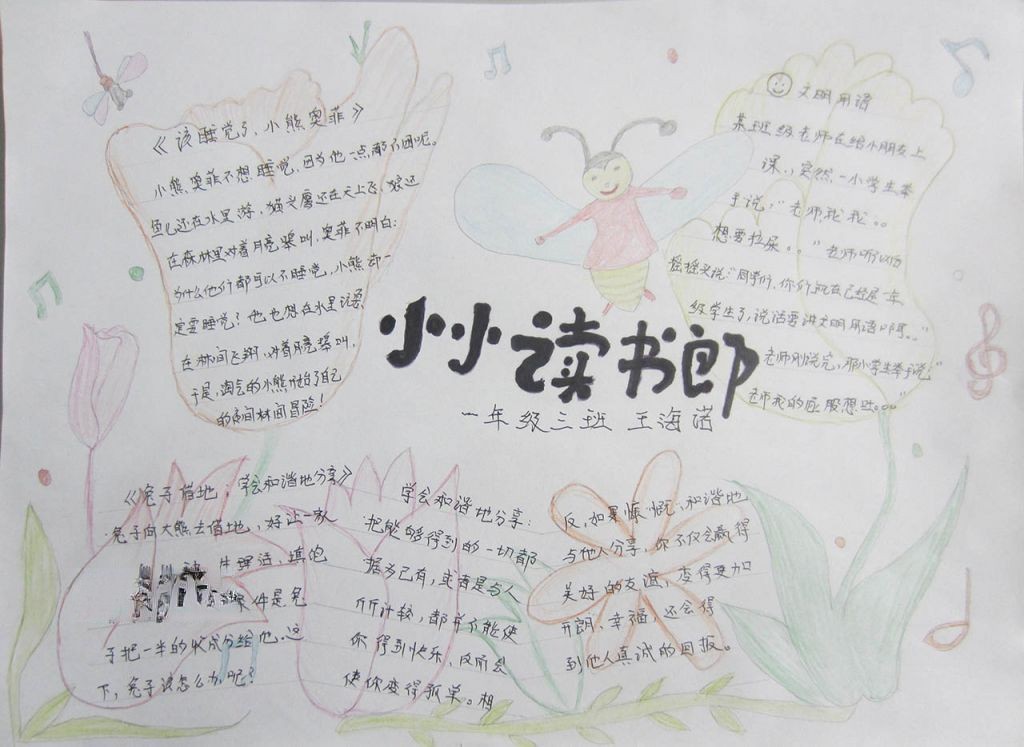 《该睡觉了，小熊奥菲》
小熊奥菲不想睡觉，因为他一点都不困呢。
鱼儿还在水里游，猫头鹰还在天上飞，狼还
在森林里对着月亮嗥叫，奥菲不明白：
为什么他们都可以不睡觉，小熊却一
定要睡觉？他也想在水里
在林间飞翔，对着月亮嗥叫，
于是，淘气的小熊开始了自己
的夜间林间冒险！
文明用语
某班级老师在给小朋友上
课，突然一小学生举
手说："老师我我。。
想要拉屎。。"老师听以后
摇摇头说："同学们，你们现在已经是一年
级学生了，说话要讲文明用语
老师刚说完，那小学生举手说："
老师我的屁股想吐。。。"
小小读书郎
一年级三班 王海诺
《兔子借地；学会和谐地分享》
兔子向大熊去借地，好让一家
填饱
条件是兔
子把一半的收成分给他。这
下，兔子该怎么办呢？
学会和谐地分享：
把能够得到的一切都
据为己有，或者是与人
斤斤计较，都并不能使
你得到快乐，反而会
使你变得孤单。相
反，如果慷慨，和谐地
与他人分享，你不仅会赢得
美好的友谊，变得更加
开朗、幸福，还会得
到他人真诚的回报。